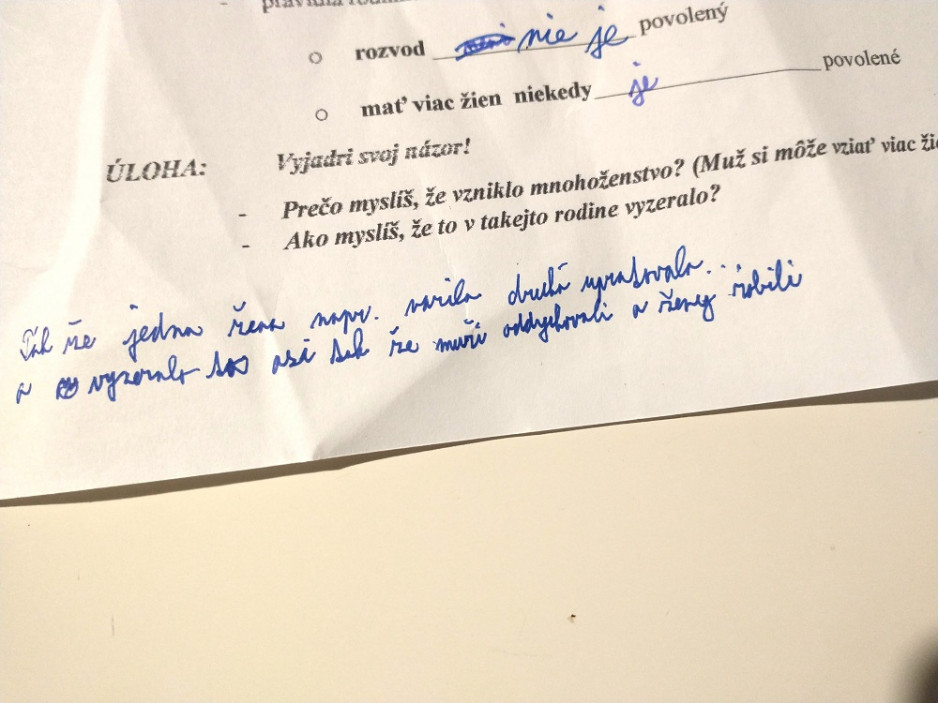 - pravidlá
○ rozvod nie je povolený
○ mať viac žien niekedy je povolené
ÚLOHA: Vyjadri svoj názor!
- Prečo myslíš, že vzniklo mnohoženstvo? (Muž si môže vziať viac
- Ako myslíš, že to v takejto rodine vyzeralo?
Tak že jedna žena napr. varila druhá upratovala...
a vyzeralo to asi tak že muži oddychovali a ženy robili